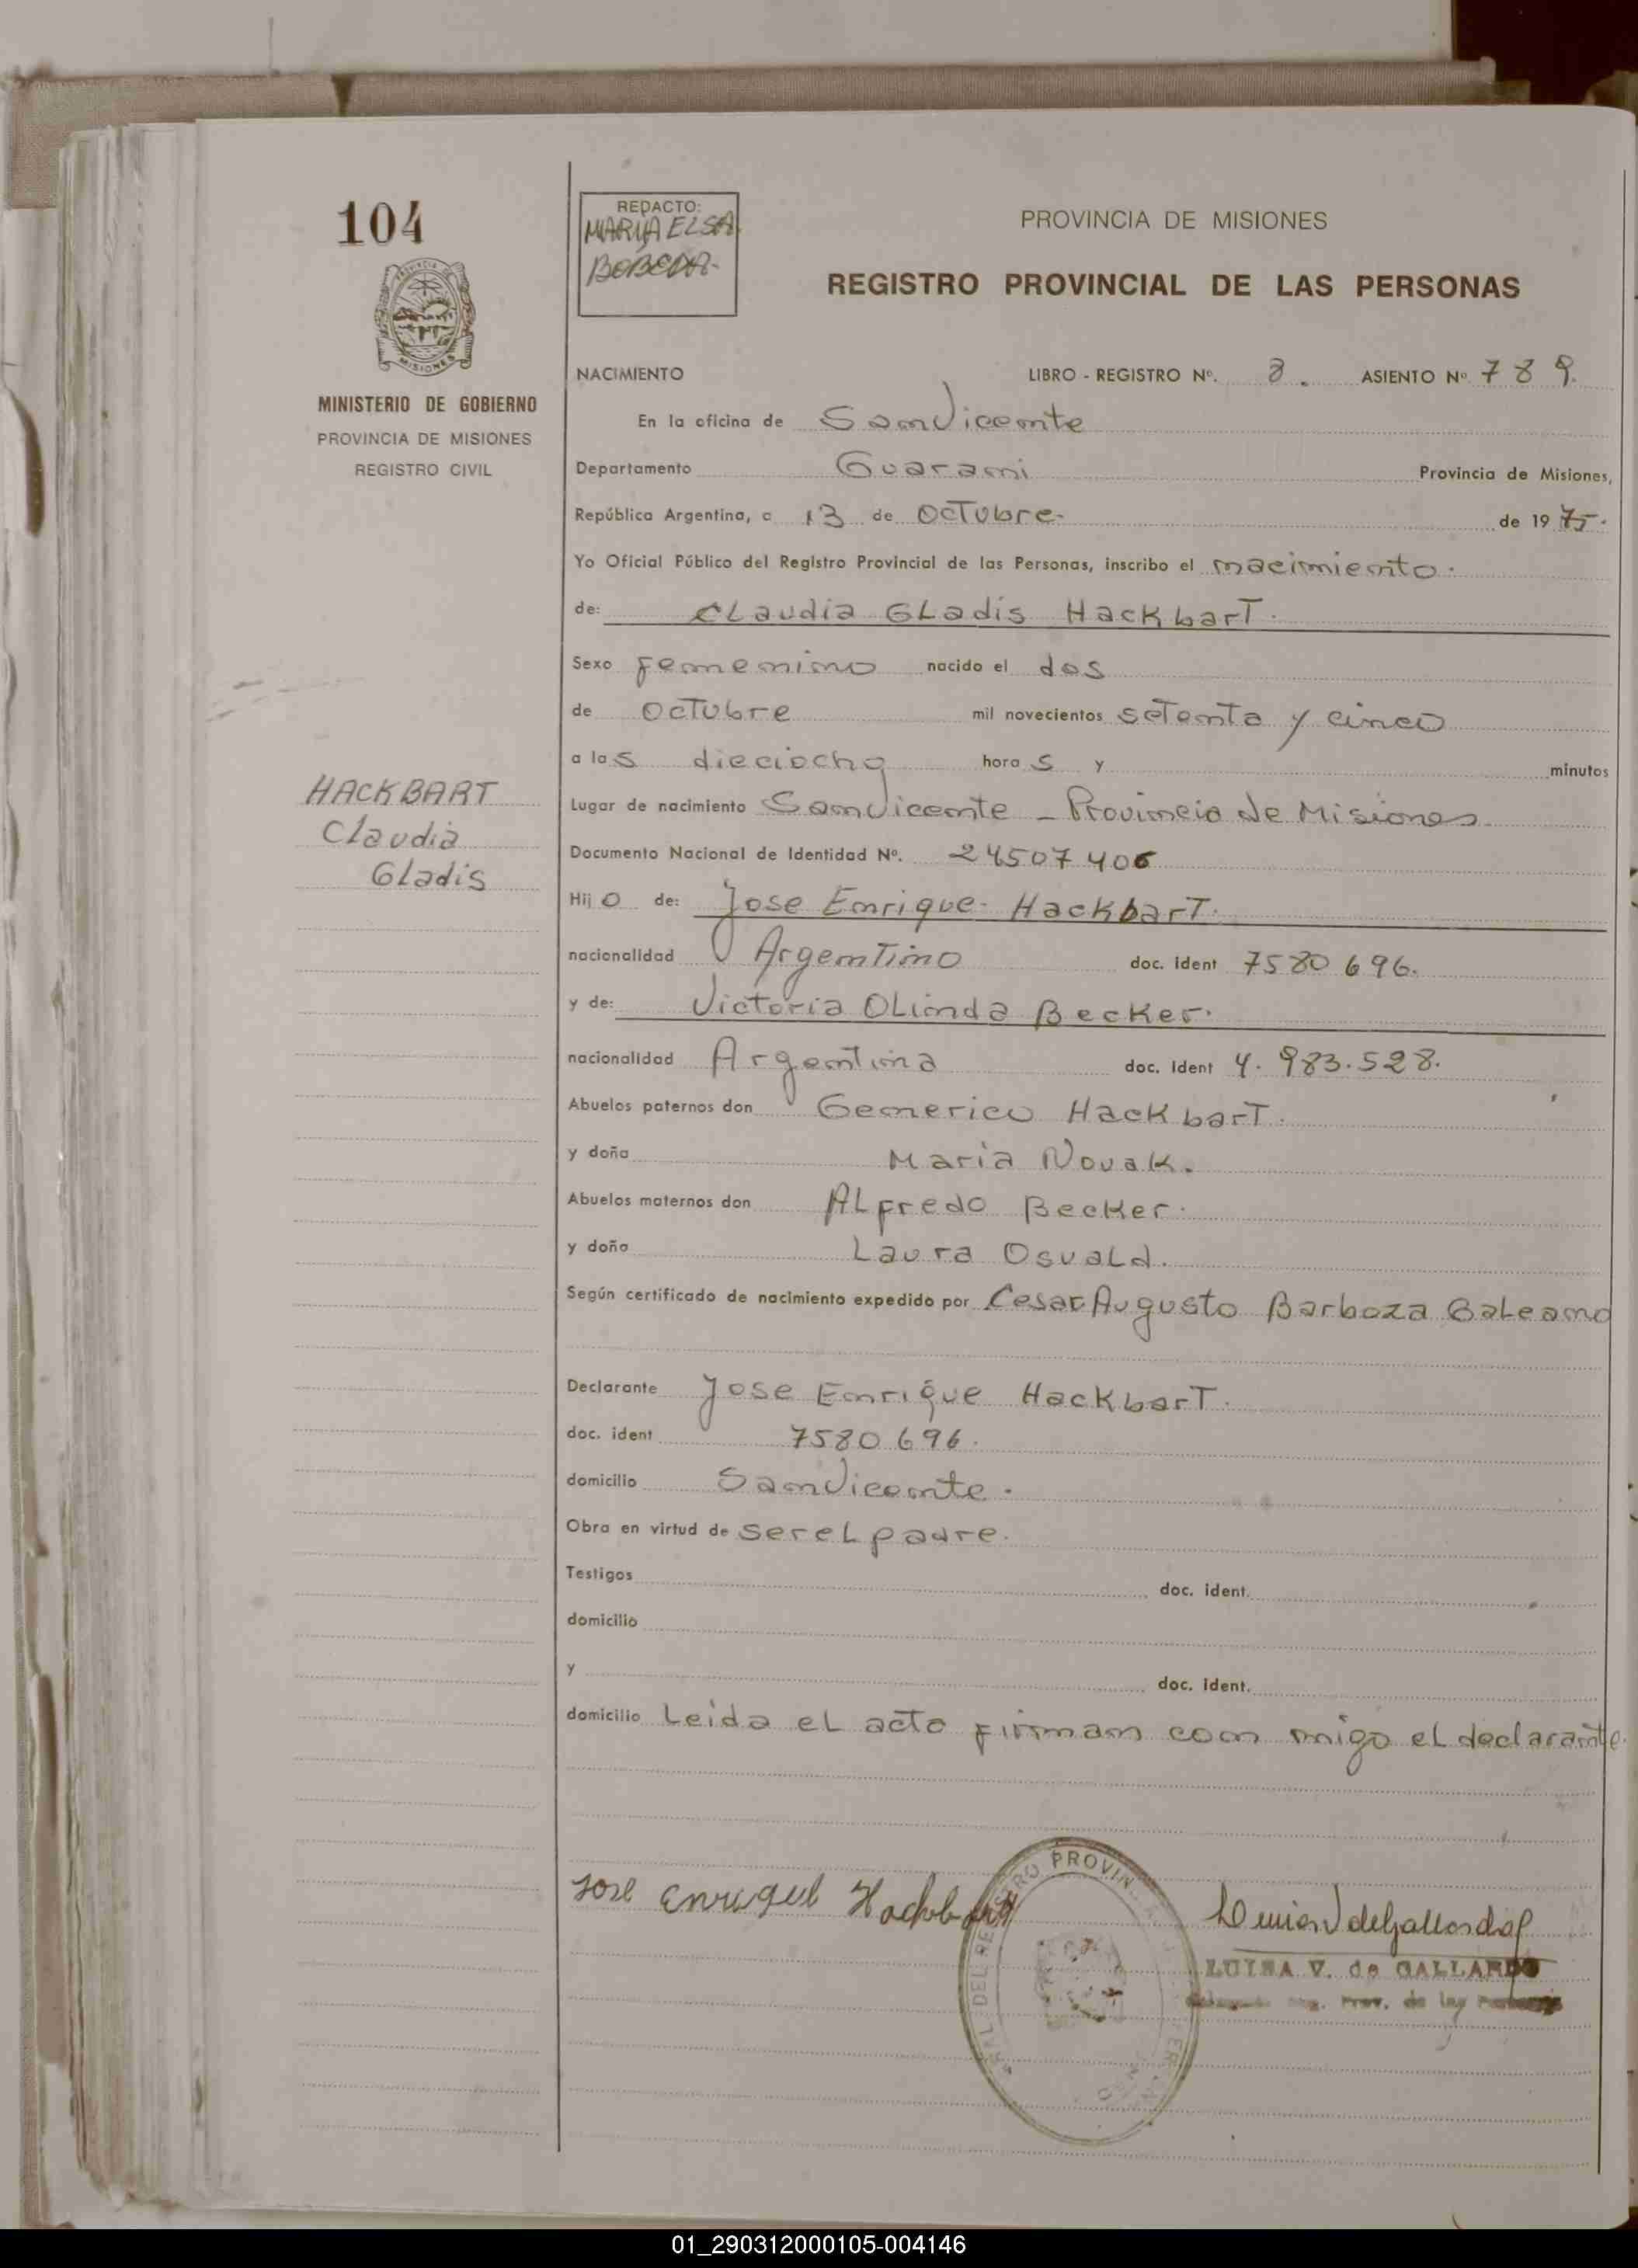 104
PROVINCIA DE
MISIONES
MINISTERIO DE GOBIERNO
PROVINCIA DE MISIONES
REGISTRO CIVIL
HACKBART
Claudia
Gladis
REDACTO:
MARIA ELSA
BOBEDA-
PROVINCIA DE MISIONES
REGISTRO PROVINCIAL DE LAS PERSONAS
NACIMIENTO LIBRO - REGISTRO Nº. 8. ASIENTO Nº 789.
En la oficina de San Vicente
Departamento Guarani Provincia de Misiones,
República Argentina, a 13 de Octubre- de 1975.
Yo Oficial Público del Registro Provincial de las Personas, inscribo el nacimiento.
de: Claudia Gladis Hackbart.
Sexo femenino nacido el dos
de Octubre mil novecientos setenta y cinco
a las dieciocho horas y minutos
Lugar de nacimiento San Vicente - Provincia de Misiones
Documento Nacional de Identidad Nº. 24507406
Hijo de: Jose Enrique- Hackbart.
nacionalidad Argentino doc. ident 7580696.
y de: Victoria Olinda Becker.
nacionalidad Argentina doc. ident 4.983.528.
Abuelos paternos don Generico Hackbart.
y doña Maria Novak.
Abuelos maternos don Alfredo Becker.
y doña Laura Osvald.
Según certificado de nacimiento expedido por Cesar Augusto Barboza Galeano
Declarante Jose Enrique Hackbart.
doc. ident 7580696.
domicilio San Vicente.
Obra en virtud de ser el padre.
Testigos doc. ident.
domicilio
y doc. ident.
domicilio Leida el acto firman con migo el declarante.
Jose Enrique Hackbart
LUISA V. de GALLARDO
Reg. Prov. de las Personas
01_290312000105-004146